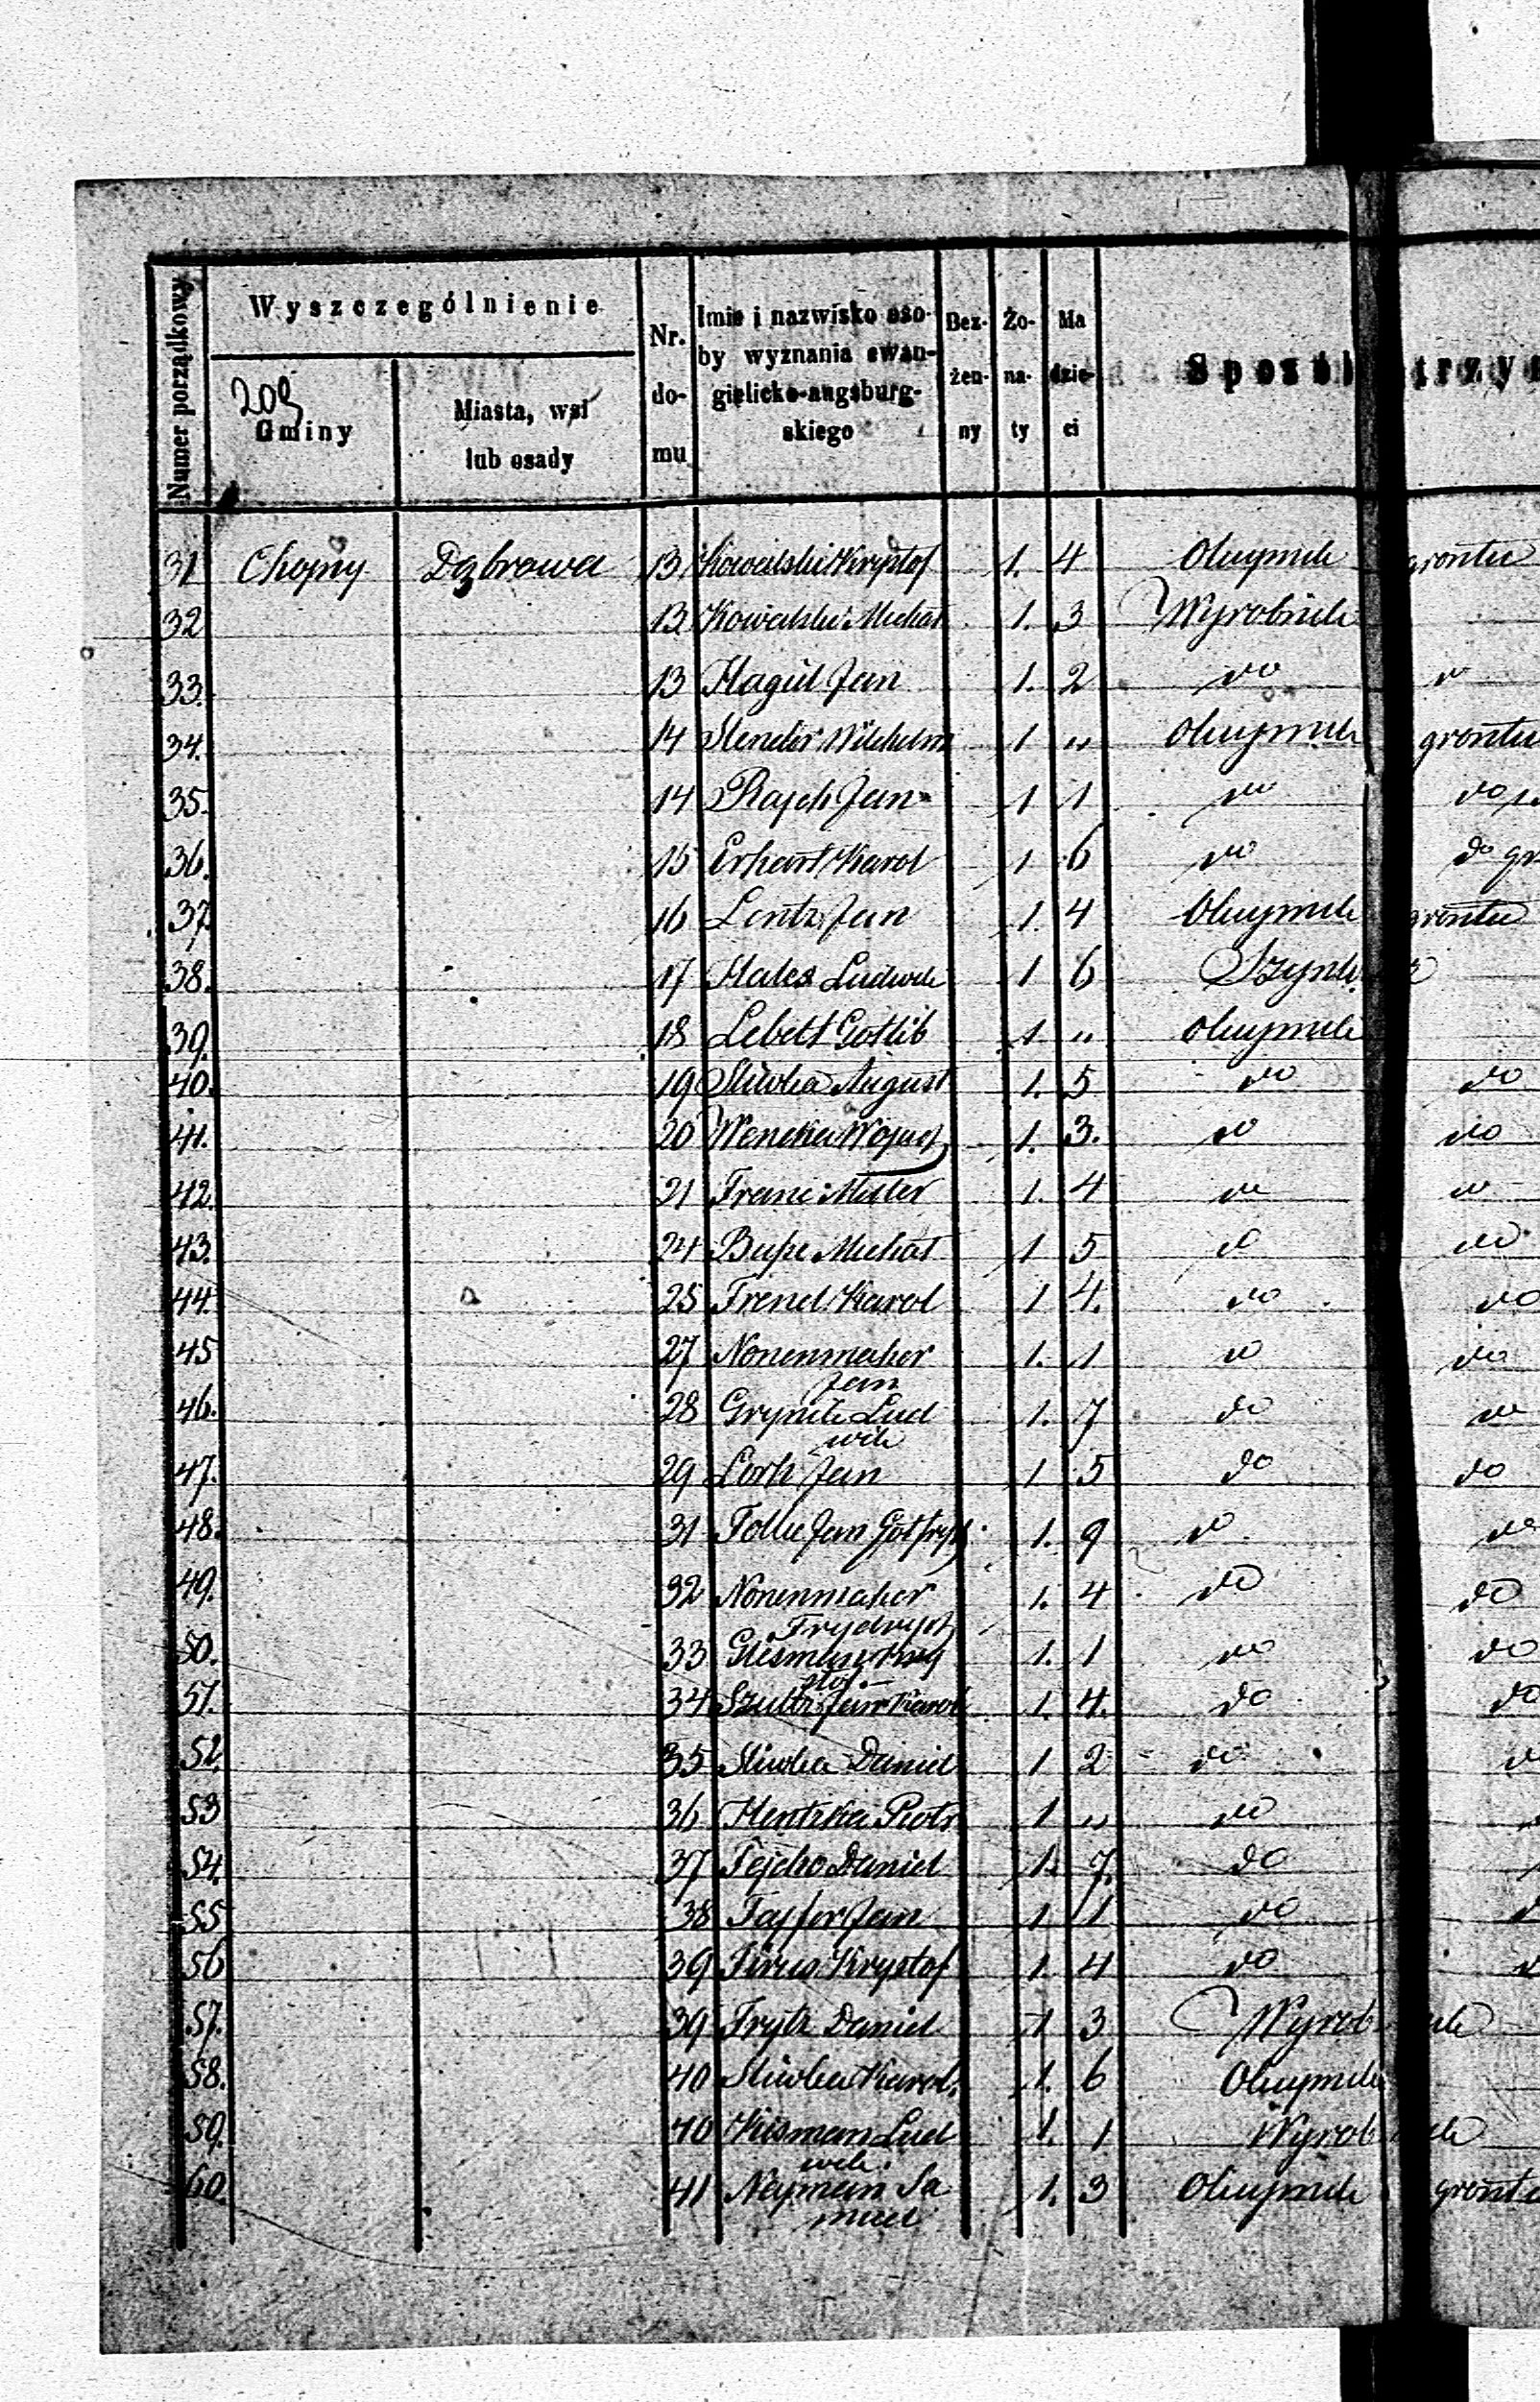 Numer porządkowy
Wyszczególnienie
209
Gminy
Miasta, wsi
lub osady
Nr.
do-
mu
Imie i nazwisko oso-
by wyznania ewan-
gielicko-augsburg-
skiego
Bez-
żen-
ny
Żo-
na-
ty
Ma
dzie-
ci
Sposób trzy
31 Chojny Dąbrowa 13 Kowalski Krystof 1. 4 Okupnik gruntu
32 13 Kowalski Michał 1. 3 Wyrobnik
33. 13 Hagul Jan 1. 2 do
34. 14 Slender Wilhelm 1 " Okupnik gruntu
35. 14 Rajch Jan 1 1 do do
36. 15 Erhart Karol 1 6 do do
37 16 Lentz Jan 1. 4 Okupnik gruntu
38. 17 Hales Ludwik 1 6
39. 18 Lebelt Gotlib 1 " Okupnik
40. 19 Sliwka August 1. 5 do do
41. 20 Wencka 1. 3. do do
42. 21 Franc Miller 1. 4 do do
43. 24 Busze Michał 1 5 do do
44. 25 Frend Karol 1 4. do do
45 27 Nonenmaher 1. 1 do do
Jan
46. 28 Grynik Lud 1. 7 do do
wik
47. 29 Lorh Jan 1 5 do do
48. 31 Jan Gotfryd 1. 9 do do
49. 32 Nonenmaher 1. 4 do do
Frydrych
50. 33 Glesman Kry 1. 1 do do
stof
51. 34 Szultz Jan Karol 1. 4. do do
52. 35 Sliwka Daniel 1 2 do
53 36 Hentzka Piotr 1 " do
54. 37 Tejcho Daniel 1. 7. do
55 38 Tajfer Jan 1 1 do
56 39 Firus Krystof 1. 4 do
57. 39 Frytz Daniel 1 3 Wyrobnik
58. 40 Sliwka Karol. 1. 6 Okupnik
59. 40 Kisman Lud 1. 1 Wyrobnik
wik.
60. 41 Neyman Sa 1. 3 Okupnik gruntu
muel